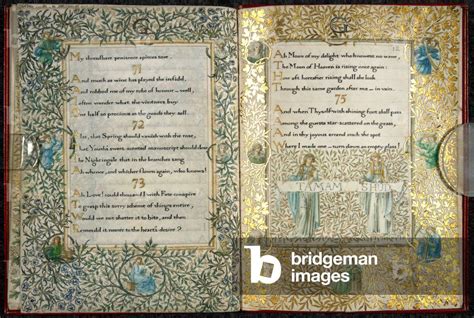 My threadbare penitence apieces tore.
And much as wine has played the infidel,
And robbed me of my robe of honour — well,
often wonder what the vintners buy
One half so precious as the goods they sell.
Alas, that Spring should vanish with the rose,
That Youth's sweet scented manuscript should close
The Nightingale that in the branches sang
Ah whence, and whither flown again, who knows!
73
Ah Love! could thou & I with Fate conspire
To grasp this sorry scheme of things entire,
Would we not shatter it to bits, and then
Remould it nearer to the heart's desire?
Ah Moon of my delight who knowest no wane,
The Moon of Heaven is rising once again:
How oft hereafter rising shall she look
Through this same garden after me — in vain.
75
And when Thyself with shining foot shall pass
Among the guests star-scattered on the grass,
And in thy joyous errand reach the spot
Where I made one — turn down an empty glass!
TAMAM SHUD
b bridgeman
images